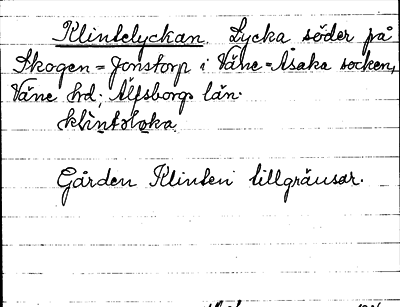 Klintelyckan. Lycka söder på
Skogen = Jonstorp i Väne = Åsaka socken,
Väne hd; Älfsborgs län.
klintəloka
Gården Klinten tillgränsar.